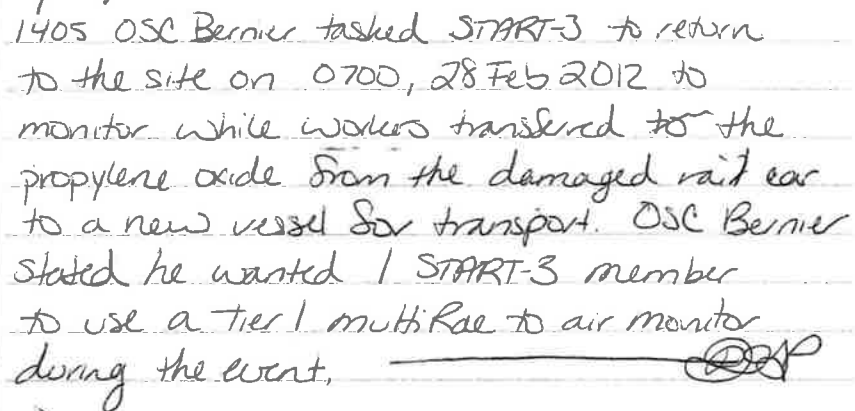 1405 OSC Bernier tasked START-3 to return
to the site on 0700, 28 Feb 2012 to
monitor while workers transferred to the
propylene oxide from the damaged rail car
to a new vessel for transport. OSC Bernier
stated he wanted 1 START-3 member
to use a tier 1 multiRae to air monitor
during the event.